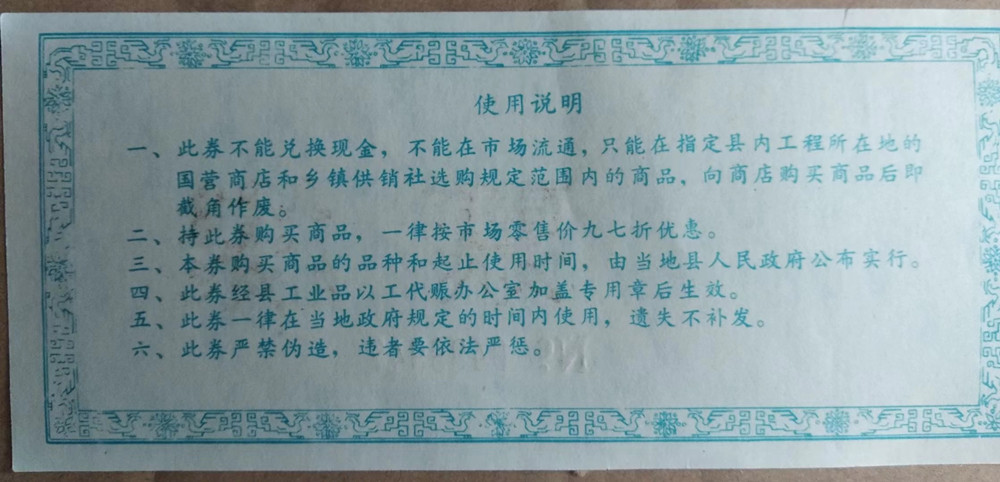 使用说明
一、此券不能兑换现金，不能在市场流通，只能在指定县内工程所在地的
国营商店和乡镇供销社选购规定范围内的商品，向商店购买商品后即
截角作废。
二、持此券购买商品，一律按市场零售价九七折优惠。
三、本券购买商品的品种和起止使用时间，由当地县人民政府公布实行。
四、此券经县工业品以工代赈办公室加盖专用章后生效。
五、此券一律在当地政府规定的时间内使用，遗失不补发。
六、此券严禁伪造，违者要依法严惩。